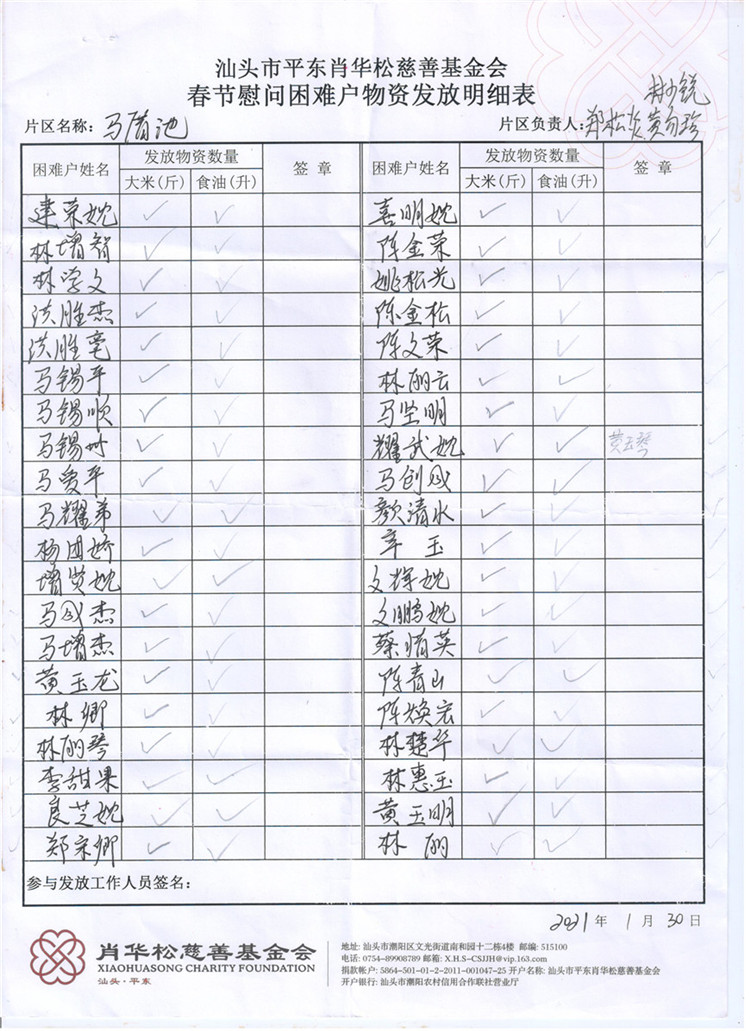 汕头市平东肖华松慈善基金会
春节慰问困难户物资发放明细表
片区名称：马滘池
片区负责人：郑松炎
困难户姓名 发放物资数量 签章 困难户姓名 发放物资数量 签章
大米(斤) 食油(升) 大米(斤) 食油(升)
建荣 ✓ ✓ 喜明 ✓ ✓
林增智 ✓ ✓ 陈金荣 ✓ ✓
林学文 ✓ ✓ 姚松光 ✓ ✓
洪胜杰 ✓ ✓ 陈金松 ✓ ✓
洪胜亳 ✓ ✓ 陈文荣 ✓ ✓
马锡平 ✓ ✓ 林丽云 ✓ ✓
马锡顺 ✓ ✓ 马坚明 ✓ ✓
马锡 ✓ ✓ 耀武 ✓ ✓ 黄玉琴
马爱平 ✓ ✓ 马创成 ✓ ✓
马耀弟 ✓ ✓ 颜清水 ✓ ✓
杨团娇 ✓ ✓ 辛玉 ✓ ✓
增贤 ✓ ✓ 文辉 ✓ ✓
马成杰 ✓ ✓ 文鹏 ✓ ✓
马增杰 ✓ ✓ 蔡惜英 ✓ ✓
黄玉龙 ✓ ✓ 陈青山 ✓ ✓
林卿 ✓ ✓ 陈焕宏 ✓ ✓
林丽琴 ✓ ✓ 林楚华 ✓ ✓
李甜果 ✓ ✓ 林惠玉 ✓ ✓
良芝 ✓ ✓ 黄玉明 ✓ ✓
郑宋卿 ✓ ✓ 林丽 ✓ ✓
参与发放工作人员签名：
2021年 1月 30日
肖华松慈善基金会
XIAOHUASONG CHARITY FOUNDATION
汕头·平东
地址: 汕头市潮阳区文光街道南和园十二栋4楼 邮编: 515100
电话: 0754-89908789 邮箱: X.H.S-CSJJH@vip.163.com
捐款帐户: 5864-501-01-2-2011-001047-25 开户名称: 汕头市平东肖华松慈善基金会
开户银行: 汕头市潮阳农村信用合作联社营业厅